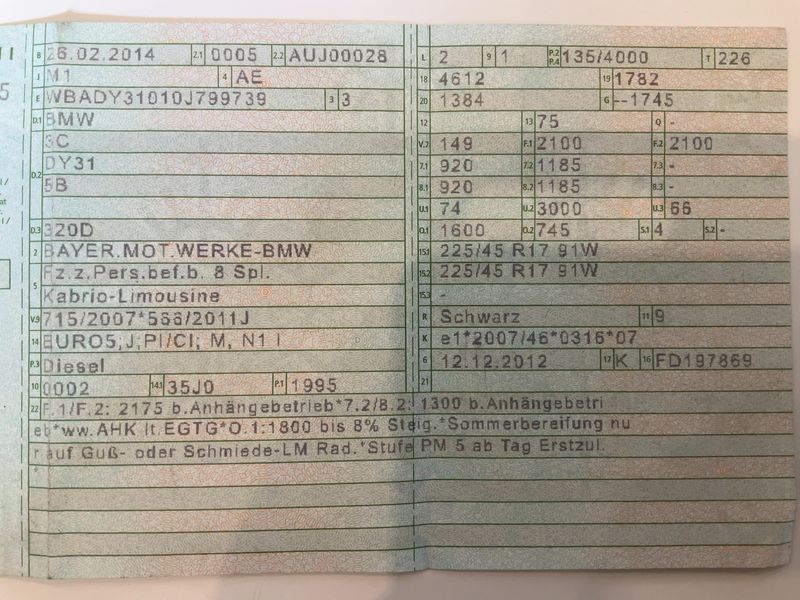 B 26.02.2014 2.1 0005 2.2 AUJ00028
J M1 4 AE
E WBADY31010J799739 3 3
D.1 BMW
D.2 3C
DY31
5B
D.3 320D
2 BAYER.MOT.WERKE-BMW
5 Fz.z.Pers.bef.b. 8 Spl.
Kabrio-Limousine
V.9 715/2007*566/2011J
14 EURO5;J;PI/CI; M, N1 I
P.3 Diesel
10 0002 14.1 35J0 P.1 1995
L 2 9 1 P.2 P.4 135/4000 T 226
18 4612 19 1782
20 1384 G --1745
12 13 75 Q -
V.7 149 F.1 2100 F.2 2100
7.1 920 7.2 1185 7.3 -
8.1 920 8.2 1185 8.3 -
U.1 74 U.2 3000 U.3 66
O.1 1600 O.2 745 S.1 4 S.2 -
15.1 225/45 R17 91W
15.2 225/45 R17 91W
15.3 -
R Schwarz 11 9
K e1*2007/46*0316*07
6 12.12.2012 17 K 16 FD197869
21
22 F.1/F.2: 2175 b.Anhängebetrieb*7.2/8.2: 1300 b.Anhängebetri
eb*ww.AHK lt.EGTG*O.1:1800 bis 8% Steig.*Sommerbereifung nu
r auf Guß- oder Schmiede-LM Rad.*Stufe PM 5 ab Tag Erstzul.
*